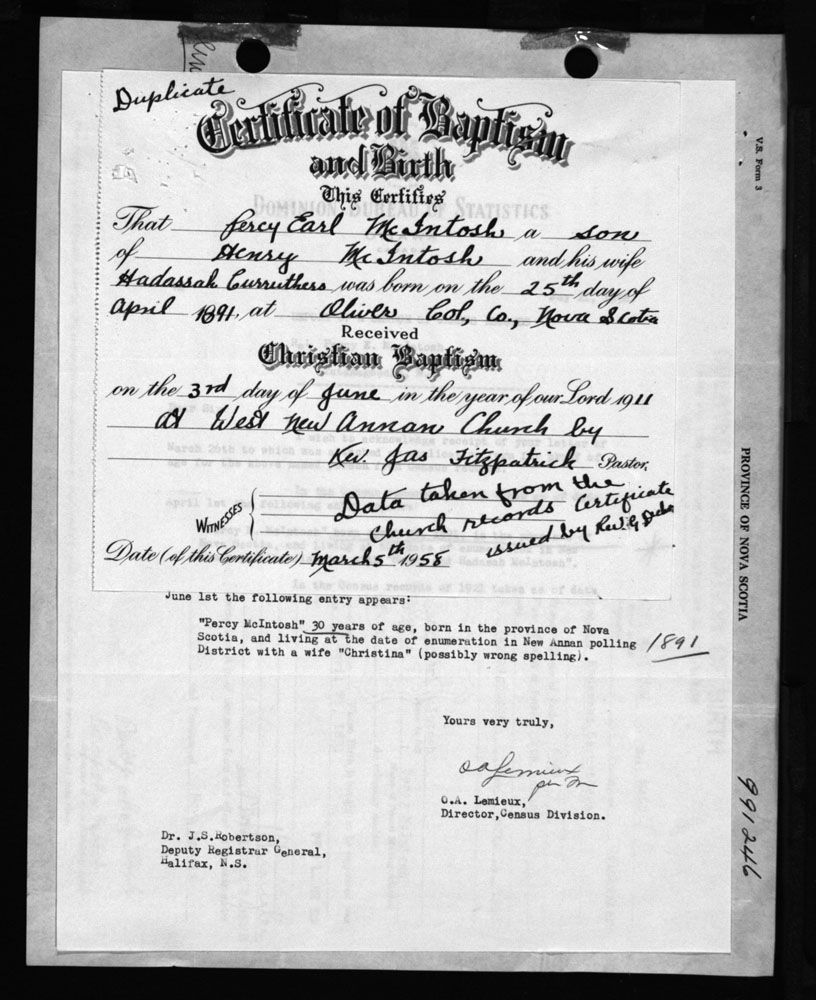 Duplicate
Certificate of Baptism
and Birth
This Certifies
DOMINION BUREAU OF STATISTICS
That Percy Earl McIntosh a son
of Henry McIntosh and his wife
Hadassah Curruthers was born on the 25th day of
April 1891, at Oliver Col, Co., Nova Scotia
Received
Christian Baptism
on the 3rd day of June in the year of our Lord 1911
At West New Annan Church by
Rev. Jas Fitzpatrick Pastor,
WITNESSES { Data taken from the
Church records Certificate
issued by Rev. G
Date (of this Certificate) March 5th 1958
June 1st the following entry appears:
"Percy McIntosh" 30 years of age, born in the province of Nova
Scotia, and living at the date of enumeration in New Annan polling
District with a wife "Christina" (possibly wrong spelling).
1891
Yours very truly,
O A Lemieux
O.A. Lemieux,
Director, Census Division.
Dr. J.S.Robertson,
Deputy Registrar General,
Halifax, N.S.
V.S. Form 3
PROVINCE OF NOVA SCOTIA
991246